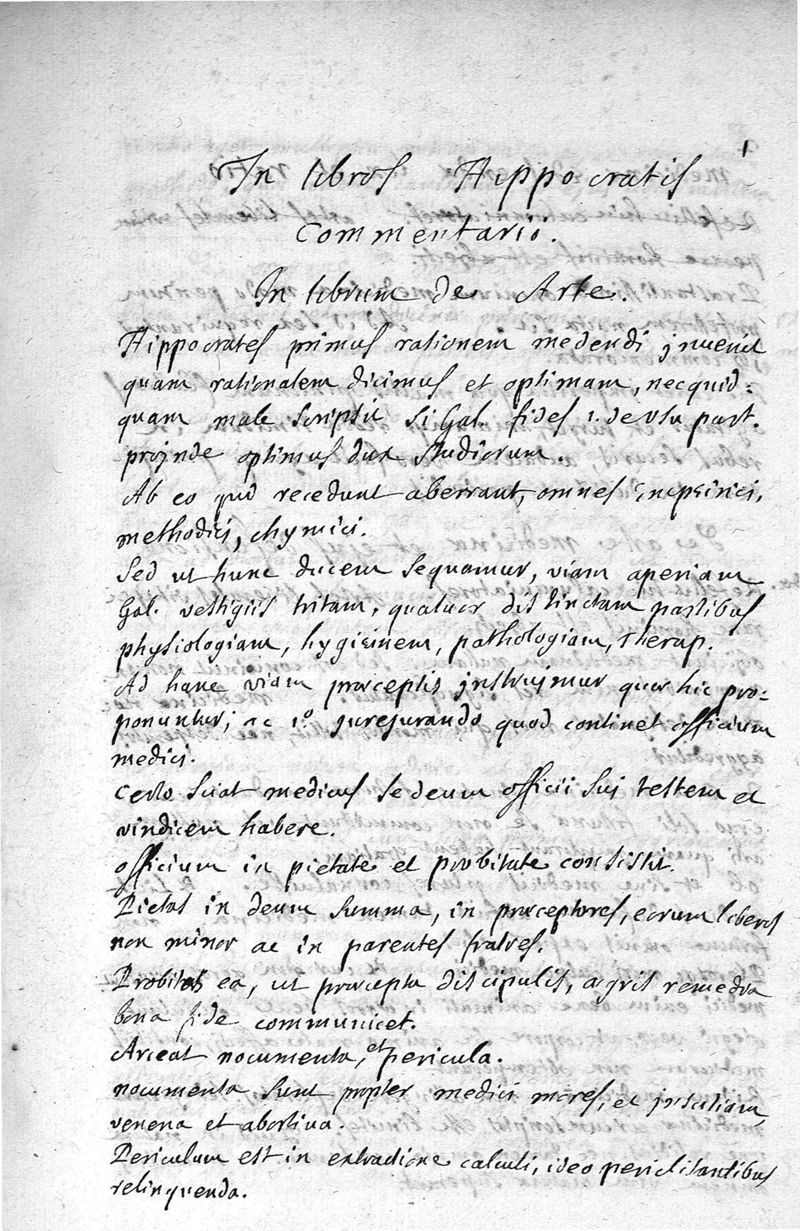 1
In libros Hippocratis
Commentario.
In librum de Arte.
Hippocrates primus rationem medendi jnuenit
quam rationalem dicimus et optimam, nec quid-
quam male scripsit si Gal. fides 1. de vsu part.
projnde optimus dux studiorum.
Ab eo qui recedunt aberrant, omnes Empeirici,
methodici, chymici.
Sed ut hunc ducem sequamur, viam aperiam
Gal. vestigiis tritam, quatuor distinctam partibus
physiologiam, hygieinem, pathologiam, Therap.
Ad hanc viam præceptis jnstruymur quæ hic pro-
ponuntur; ac 1º jurejurando quod continet officium
medici.
Certo sciat medicus se deum officii sui testem et
vindicem habere.
officium in pietate et probitate consistit.
Pietas in deum summa, in præceptores, eorum liberos
non minor ac in parentes fratres.
Probitas ea, ut præcepta discipulis, ægris remedia
bona fide communicet.
Arceat nocumenta, et pericula.
nocumenta sunt propter medici mores, et jnscitiam,
venena et abortiva.
Periculum est in extractione calculi, ideo periclitantibus
relinquenda.